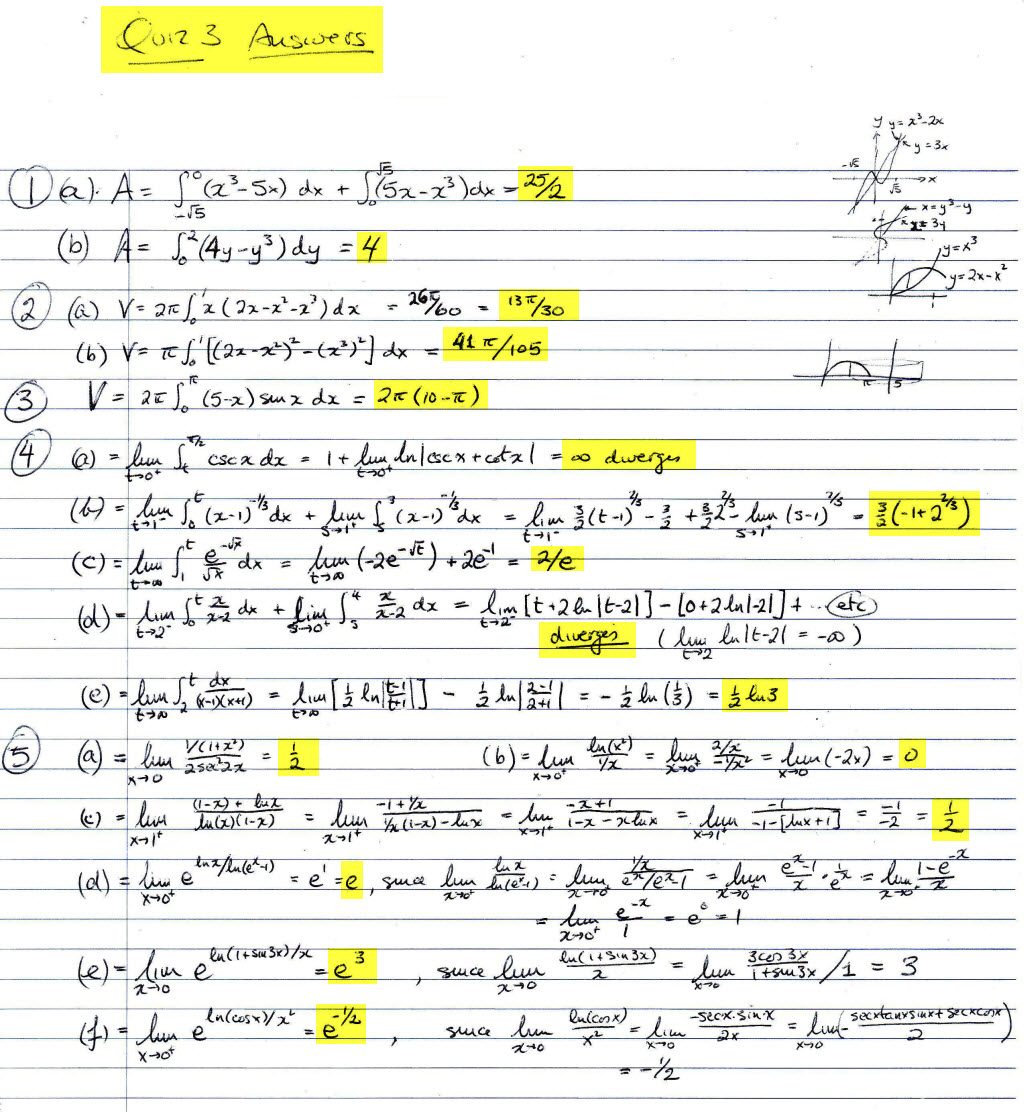 Quiz 3 Answers
y y = x³-2x
y = 3x
-√5 √5 x
① (a). A = ∫_{-√5}^{0} (x³-5x) dx + ∫_{0}^{√5} (5x-x³) dx = 25/2
x = y³-y
x = 3y
(b) A = ∫_{0}^{2} (4y-y³) dy = 4
y = x³
y = 2x-x²
② (a) V = 2π ∫_{0}^{1} x (2x-x²-x³) dx = 26π/60 = 13π/30
1
(b) V = π ∫_{0}^{1} [(2x-x²)² - (x³)²] dx = 41π/105
π 5
③ V = 2π ∫_{0}^{π} (5-x) sin x dx = 2π (10-π)
④ (a) = lim_{t→0⁺} ∫_{t}^{π/2} csc x dx = 1 + lim_{t→0⁺} ln|csc x + cot x| = ∞ diverges
(b) = lim_{t→1⁻} ∫_{0}^{t} (x-1)^{-1/3} dx + lim_{s→1⁺} ∫_{s}^{3} (x-1)^{-1/3} dx = lim_{t→1⁻} 3/2 (t-1)^{2/3} - 3/2 + 3/2 2^{2/3} - lim_{s→1⁺} (s-1)^{2/3} = 3/2 (-1+2^{2/3})
(c) = lim_{t→∞} ∫_{1}^{t} e^{-√x}/√x dx = lim_{t→∞} (-2e^{-√t}) + 2e^{-1} = 2/e
(d) = lim_{t→2⁻} ∫_{0}^{t} x/(x-2) dx + lim_{s→0⁺} ∫_{s}^{4} x/(x-2) dx = lim_{t→2⁻} [t+2 ln|t-2|] - [0+2 ln|-2|] + ... etc
diverges (lim_{t→2} ln|t-2| = -∞)
(e) = lim_{t→∞} ∫_{2}^{t} dx/((x-1)(x+1)) = lim_{t→∞} [1/2 ln|(t-1)/(t+1)|] - 1/2 ln|(2-1)/(2+1)| = - 1/2 ln (1/3) = 1/2 ln 3
⑤ (a) = lim_{x→0} (1/(1+x²))/(2sec²2x) = 1/2 (b) = lim_{x→0⁺} ln(x²)/(1/x) = lim_{x→0⁺} (2/x)/(-1/x²) = lim_{x→0} (-2x) = 0
(c) = lim_{x→1⁺} ((1-x) + ln x)/(ln(x)(1-x)) = lim_{x→1⁺} (-1+1/x)/(1/x (1-x) - ln x) = lim_{x→1⁺} (-x+1)/(1-x-x ln x) = lim_{x→1⁺} -1/(-1-[ln x+1]) = -1/-2 = 1/2
(d) = lim_{x→0⁺} e^{ln x/ln(e^x-1)} = e¹ = e, since lim_{x→0⁺} ln x/ln(e^x-1) = lim_{x→0⁺} (1/x)/(e^x/(e^x-1)) = lim_{x→0⁺} (e^x-1)/x · 1/e^x = lim_{x→0⁺} (1-e^{-x})/x
= lim_{x→0⁺} e^{-x}/1 = e⁰ = 1
(e) = lim_{x→0} e^{ln(1+sin3x)/x} = e³, since lim_{x→0} ln(1+sin3x)/x = lim_{x→0} 3cos 3x/(1+sin3x) /1 = 3
(f) = lim_{x→0⁺} e^{ln(cosx)/x²} = e^{-1/2}, since lim_{x→0} ln(cosx)/x² = lim_{x→0} -secx·sinx/2x = lim_{x→0} (-(secxtanxsinx+secxcosx)/2)
= -1/2